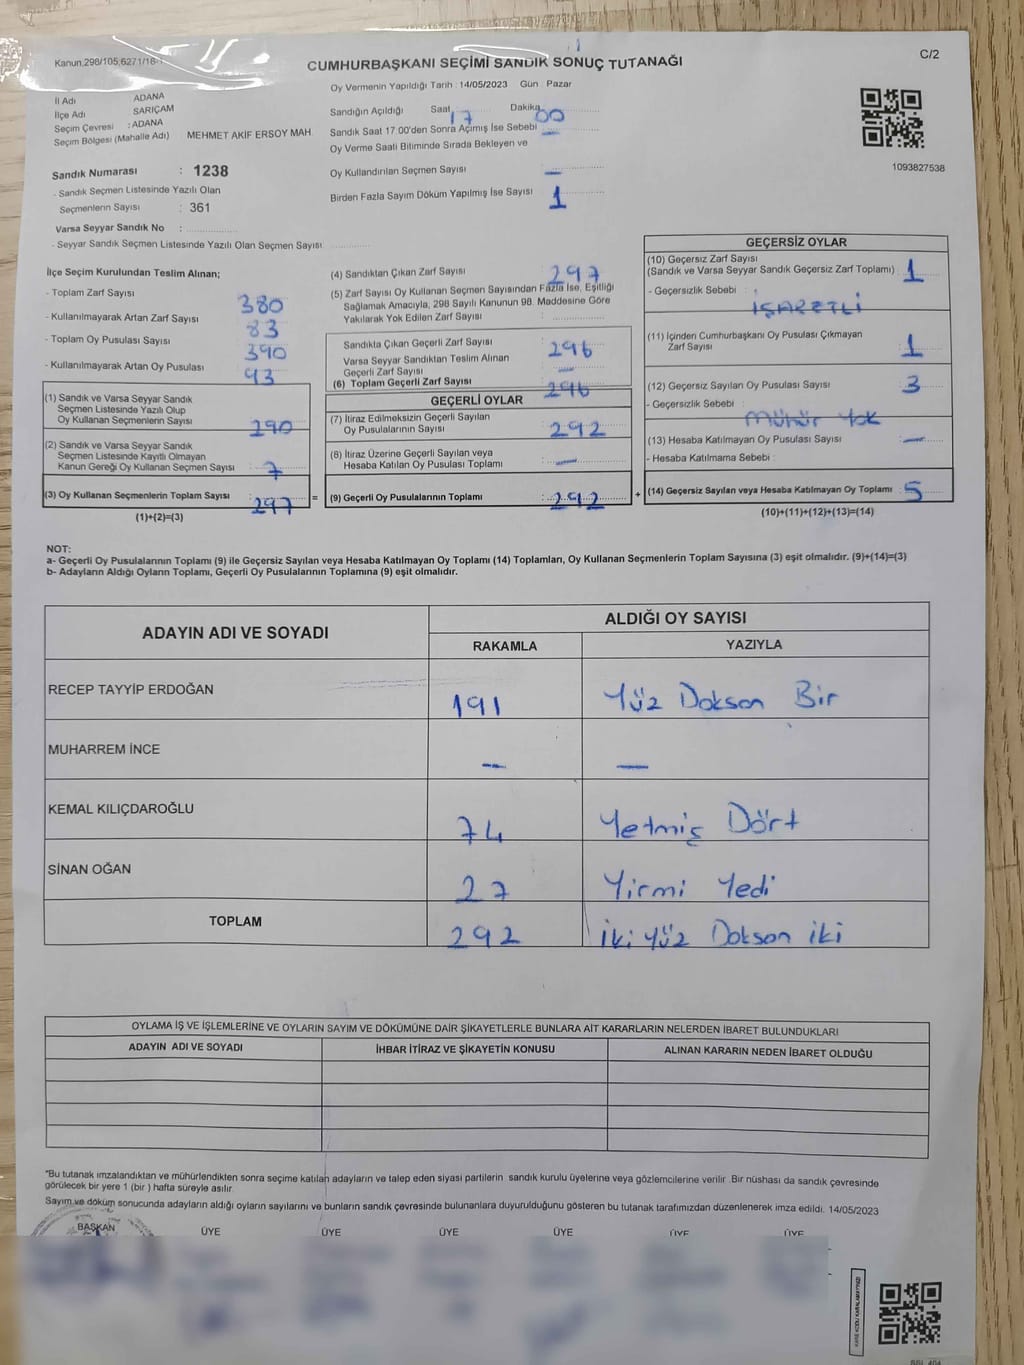 Kanun.298/105;6271/16-1
C/2
CUMHURBAŞKANI SEÇİMİ SANDIK SONUÇ TUTANAĞI
Oy Vermenin Yapıldığı Tarih : 14/05/2023 Gün Pazar
İl Adı ADANA
İlçe Adı SARIÇAM
Seçim Çevresi : ADANA
Seçim Bölgesi (Mahalle Adı) MEHMET AKİF ERSOY MAH.
Sandığın Açıldığı Saat 17 Dakika 00
Sandık Saat 17.00'den Sonra Açımış İse Sebebi —
Oy Verme Saati Bitiminde Sırada Bekleyen ve
Oy Kullandırılan Seçmen Sayısı —
Birden Fazla Sayım Döküm Yapılmış İse Sayısı 1
1093827538
Sandık Numarası : 1238
- Sandık Seçmen Listesinde Yazılı Olan
Seçmenlerin Sayısı : 361
Varsa Seyyar Sandık No :
- Seyyar Sandık Seçmen Listesinde Yazılı Olan Seçmen Sayısı
İlçe Seçim Kurulundan Teslim Alınan;
- Toplam Zarf Sayısı 380
- Kullanılmayarak Artan Zarf Sayısı 83
- Toplam Oy Pusulası Sayısı 390
- Kullanılmayarak Artan Oy Pusulası 93
(1) Sandık ve Varsa Seyyar Sandık
Seçmen Listesinde Yazılı Olup
Oy Kullanan Seçmenlerin Sayısı 290
(2) Sandık ve Varsa Seyyar Sandık
Seçmen Listesinde Kayıtlı Olmayan
Kanun Gereği Oy Kullanan Seçmen Sayısı 7
(3) Oy Kullanan Seçmenlerin Toplam Sayısı 297 =
(1)+(2)=(3)
(4) Sandıktan Çıkan Zarf Sayısı 297
(5) Zarf Sayısı Oy Kullanan Seçmen Sayısından Fazla İse, Eşitliği
Sağlamak Amacıyla, 298 Sayılı Kanunun 98. Maddesine Göre
Yakılarak Yok Edilen Zarf Sayısı :
Sandıkta Çıkan Geçerli Zarf Sayısı 296
Varsa Seyyar Sandıktan Teslim Alınan
Geçerli Zarf Sayısı —
(6) Toplam Geçerli Zarf Sayısı 296
GEÇERLİ OYLAR
(7) İtiraz Edilmeksizin Geçerli Sayılan
Oy Pusulalarının Sayısı 292
(8) İtiraz Üzerine Geçerli Sayılan veya
Hesaba Katılan Oy Pusulası Toplamı —
(9) Geçerli Oy Pusulalarının Toplamı : 292 +
GEÇERSİZ OYLAR
(10) Geçersiz Zarf Sayısı
(Sandık ve Varsa Seyyar Sandık Geçersiz Zarf Toplamı) 1
- Geçersizlik Sebebi :
İŞARETLİ
(11) İçinden Cumhurbaşkanı Oy Pusulası Çıkmayan
Zarf Sayısı 1
(12) Geçersiz Sayılan Oy Pusulası Sayısı 3
- Geçersizlik Sebebi :
Mühür Yok
(13) Hesaba Katılmayan Oy Pusulası Sayısı —
- Hesaba Katılmama Sebebi :
(14) Geçersiz Sayılan veya Hesaba Katılmayan Oy Toplamı : 5
(10)+(11)+(12)+(13)=(14)
NOT:
a- Geçerli Oy Pusulalarının Toplamı (9) ile Geçersiz Sayılan veya Hesaba Katılmayan Oy Toplamı (14) Toplamları, Oy Kullanan Seçmenlerin Toplam Sayısına (3) eşit olmalıdır. (9)+(14)=(3)
b- Adayların Aldığı Oyların Toplamı, Geçerli Oy Pusulalarının Toplamına (9) eşit olmalıdır.
ADAYIN ADI VE SOYADI ALDIĞI OY SAYISI
RAKAMLA YAZIYLA
RECEP TAYYİP ERDOĞAN 191 Yüz Doksan Bir
MUHARREM İNCE — —
KEMAL KILIÇDAROĞLU 74 Yetmiş Dört
SİNAN OĞAN 27 Yirmi Yedi
TOPLAM 292 İki Yüz Doksan iki
OYLAMA İŞ VE İŞLEMLERİNE VE OYLARIN SAYIM VE DÖKÜMÜNE DAİR ŞİKAYETLERLE BUNLARA AİT KARARLARIN NELERDEN İBARET BULUNDUKLARI
ADAYIN ADI VE SOYADI İHBAR İTİRAZ VE ŞİKAYETİN KONUSU ALINAN KARARIN NEDEN İBARET OLDUĞU
"Bu tutanak imzalandıktan ve mühürlendikten sonra seçime katılan adayların ve talep eden siyasi partilerin sandık kurulu üyelerine veya gözlemcilerine verilir. Bir nüshası da sandık çevresinde
görülecek bir yere 1 (bir ) hafta süreyle asılır.
Sayım ve döküm sonucunda adayların aldığı oyların sayılarını ve bunların sandık çevresinde bulunanlara duyurulduğunu gösteren bu tutanak tarafımızdan düzenlenerek imza edildi. 14/05/2023
BAŞKAN ÜYE ÜYE ÜYE ÜYE ÜYE ÜYE